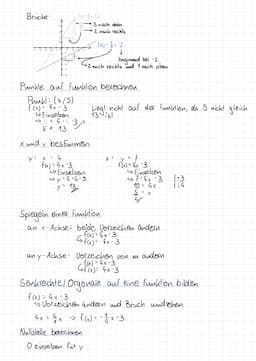 Brüche:
3 nach oben
2 nach rechts
beginnend bei -2
2 nach rechts und 1 nach oben
Punkte auf Funktion berechnen
Punkt: (4/5)
f(x) = 4x - 3
Einsetzen
5 ≠ 13
Liegt nicht auf der Funktion, da 5 nicht gleich
13 ist
x und y bestimmen
y: x = 4
f(x) = 4x - 3
Einsetzen
y = 4 · 4 - 3
y = 13
x: y = 7
f(x) = 4x - 3
Einsetzen
7 = 4x - 3 | +3
10 = 4x | :4
Spiegeln einer Funktion
an x-Achse: beide Vorzeichen ändern
f(x) = 4x - 3
an y-Achse: Vorzeichen von m ändern
f(x) = 4x - 3
Senkrechte/Orgonale auf eine Funktion bilden
f(x) = 4x - 3
Vorzeichen ändern und Bruch umdrehen
Nullstelle berechnen
0 einsetzen für y